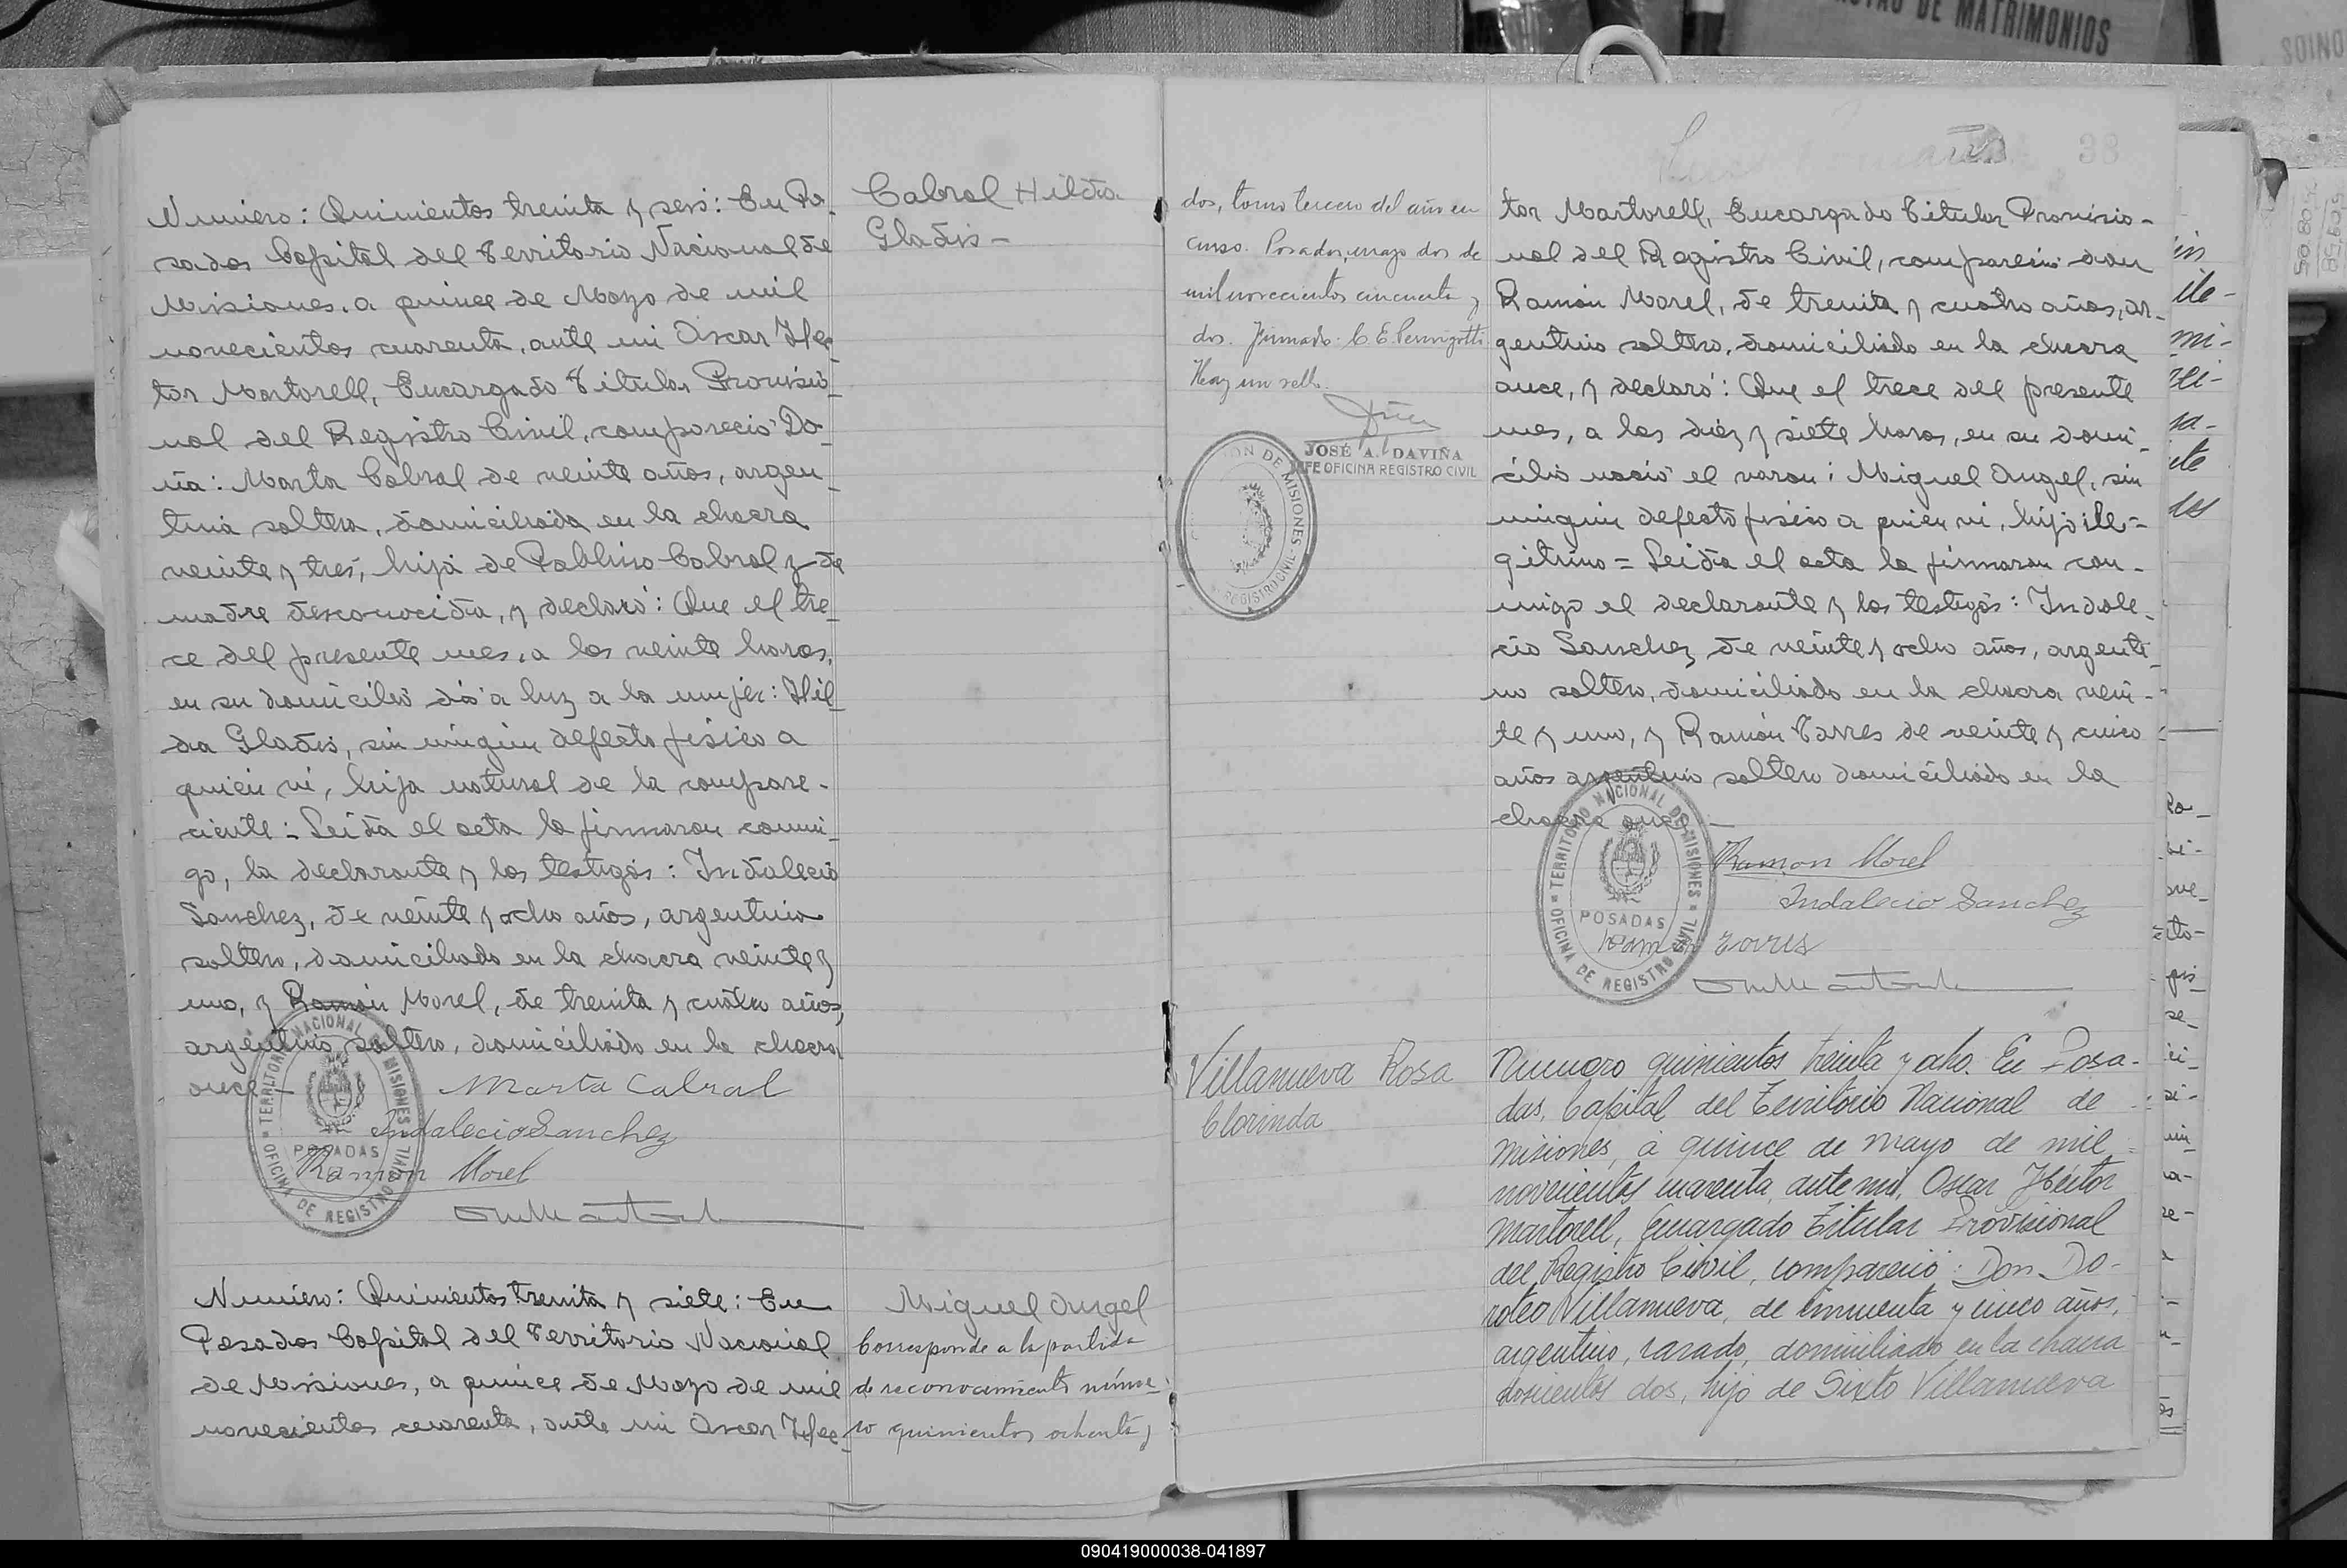 DE MATRIMONIOS
Numero: Quinientos treinta y seis: En Po-
sadas Capital del Territorio Nacional de
Misiones, a quince de Mayo de mil
novecientos cuarenta, ante mi Oscar Hec-
tor Martorell, Encargado Titular Provisio-
nal del Registro Civil, compareció Do-
ña: Marta Cabral de veinte años, argen-
tina soltera, domiciliada en la chacra
veinte y tres, hija de Pablino Cabral y de
madre desconocida, y declaró: Que el tre-
ce del presente mes, a las veinte horas,
en su domicilio dió a luz a la mujer: Hil-
da Gladis, sin ningún defecto fisico a
quien ví, hija natural de la compare-
ciente = Leída el acta la firmaron conmi-
go, la declarante y los testigos: Indalecio
Sanchez, de veinte y ocho años, argentino
soltero, domiciliado en la chacra veinte y
uno, y Ramón Morel, de treinta y cuatro años,
argentino soltero, domiciliado en la chacra
once -
Marta Cabral
Indalecio Sanchez
Ramon Morel
TERRITORIO NACIONAL DE MISIONES
POSADAS
OFICINA DE REGISTRO CIVIL
Cabral Hilda
Gladis -
Numero: Quinientos treinta y siete: En
Posadas Capital del Territorio Nacional
de Misiones, a quince de Mayo de mil
novecientos cuarenta, ante mi Oscar Hec-
Miguel Angel
Corresponde a la partida
de reconocimiento núme-
ro quinientos ochenta y
dos, tomo tercero del año en
curso. Posadas, mayo dos de
mil novecientos cincuenta y
dos. Firmado: C. E. Pernigotti
Hay un sello.
JOSÉ A. DAVIÑA
JEFE OFICINA REGISTRO CIVIL
DE MISIONES
REGISTRO CIVIL
38
tor Martorell, Encargado Titular Provisio-
nal del Registro Civil, compareció don
Ramón Morel, de treinta y cuatro años, ar-
gentino soltero, domiciliado en la chacra
once, y declaró: Que el trece del presente
mes, a las diéz y siete horas, en su domi-
cilio nació el varon: Miguel Angel, sin
ningún defecto fisico a quien ví, hijo ile-
gitimo = Leida el acta la firmaron con-
migo el declarante y los testigos: Indale-
cio Sanchez de veinte y ocho años, argenti-
no soltero, domiciliado en la chacra vein-
te y uno, y Ramón Torres de veinte y cinco
años argentino soltero domiciliado en la
chacra once -
Ramon Morel
Indalecio Sanchez
Ramon Torres
TERRITORIO NACIONAL DE MISIONES
POSADAS
OFICINA DE REGISTRO CIVIL
Villanueva Rosa
Clorinda
Numero quinientos treinta y ocho. En Posa-
das, Capital del Territorio Nacional de
Misiones, a quince de mayo de mil
novecientos cuarenta, ante mi, Oscar Héctor
Martorell, Encargado Titular Provisional
del Registro Civil, compareció: Don Do-
roteo Villanueva, de cincuenta y cinco años,
argentino, casado, domiciliado en la chacra
doscientos dos, hijo de Sixto Villanueva
090419000038-041897